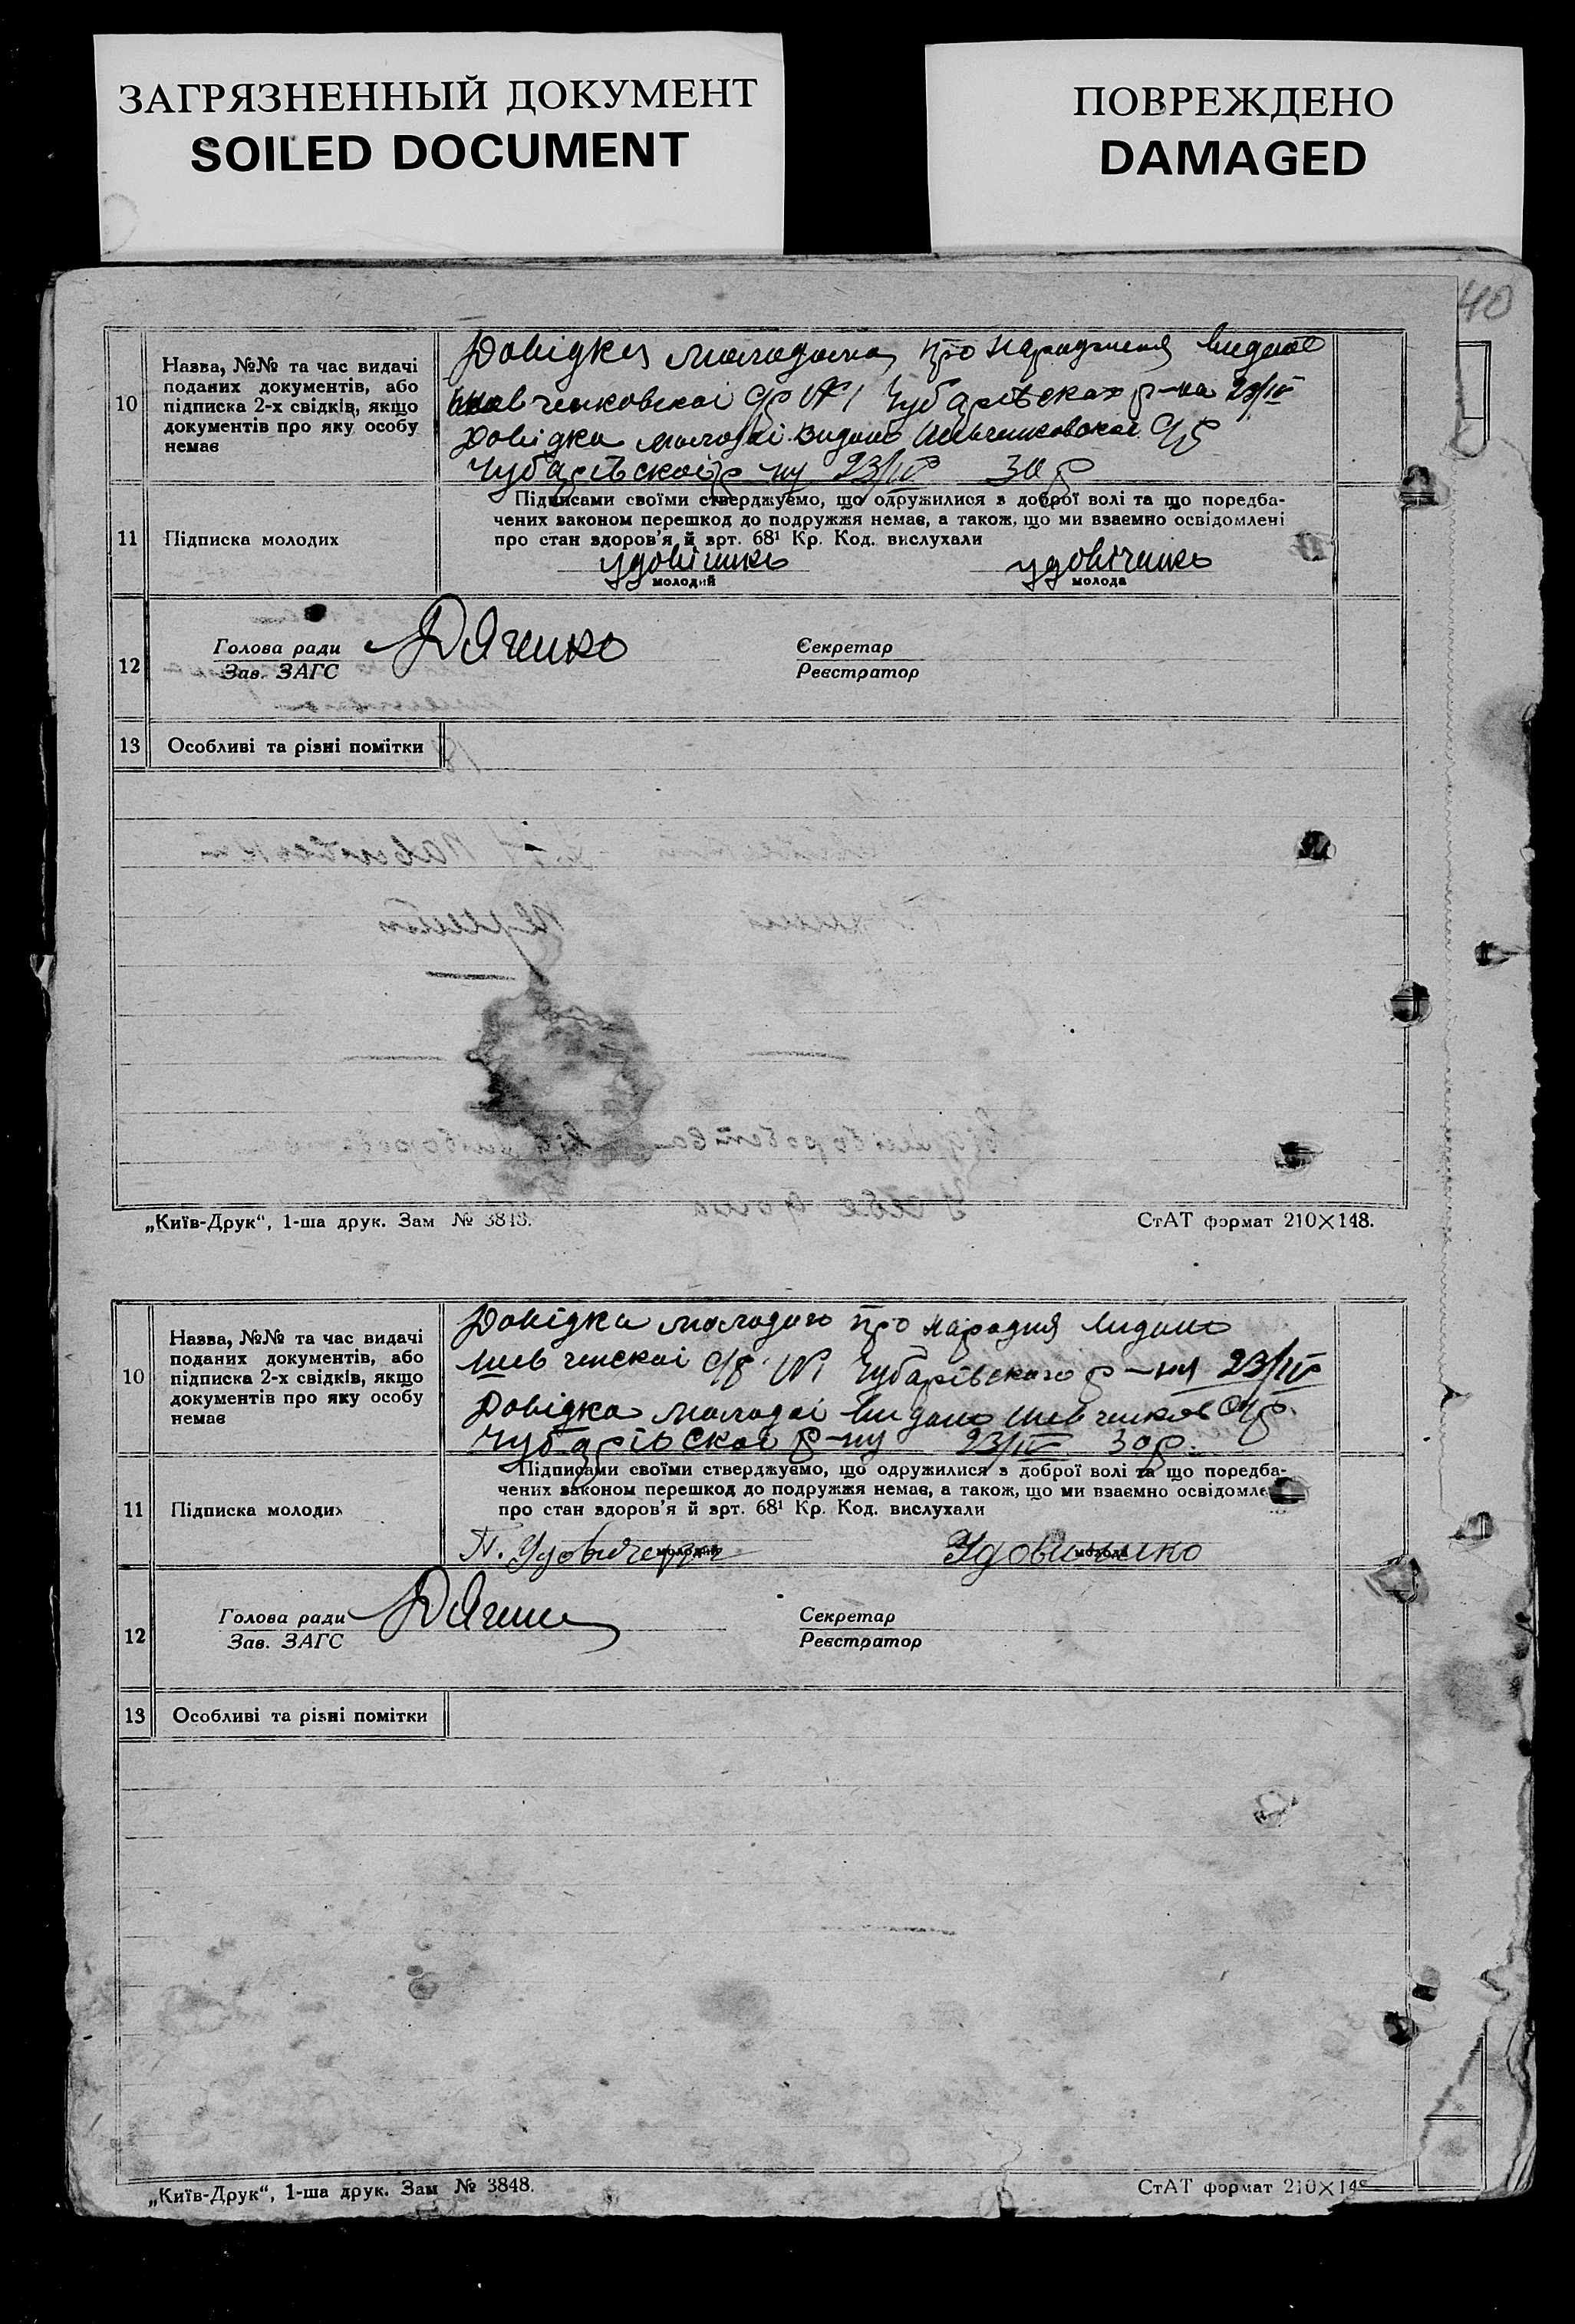 ЗАГРЯЗНЕННЫЙ ДОКУМЕНТ
SOILED DOCUMENT
ПОВРЕЖДЕНО
DAMAGED
40
10
Назва, №№ та час видачі
поданих документів, або
підписка 2-х свідків, якщо
документів про яку особу
немає
Довідка молодого про народження видано
Шевченковскої с/р №1 Чубарівска р-на 23/IV
Довідка молодої видано Шевченковскої с/р
Чубарівскої р-ну 23/IV 30 р
11
Підписка молодих
Підписами своїми стверджуємо, що одружилися з доброї волі та що поредба-
чених законом перешкод до подружжя немає, а також, що ми взаємно освідомлені
про стан здоров'я й врт. 68¹ Кр. Код. вислухали
Удовіченко
молодий
Удовіченко
молода
12
Голова ради
Зав. ЗАГС
Дяченко
Секретар
Реєстратор
13
Особливі та різні помітки
„Київ-Друк“, 1-ша друк. Зам № 3848.
СтАТ формат 210×148.
10
Назва, №№ та час видачі
поданих документів, або
підписка 2-х свідків, якщо
документів про яку особу
немає
Довідка молодого про народня видано
Шевченскої с/р №1 Чубарівского р-ну 23/IV
Довідка молодої видано Шевченков с/р.
Чубарівскої р-ну 23/IV 30 р.
11
Підписка молодих
Підписами своїми стверджуємо, що одружилися з доброї волі та що поредба-
чених законом перешкод до подружжя немає, а також, що ми взаємно освідомле
про стан здоров'я й врт. 68¹ Кр. Код. вислухали
П. Удовиченко
молодий
Удовиченко
молода
12
Голова ради
Зав. ЗАГС
Дячен
Секретар
Реєстратор
13
Особливі та різні помітки
„Київ-Друк“, 1-ша друк. Зам № 3848.
СтАТ формат 210×148